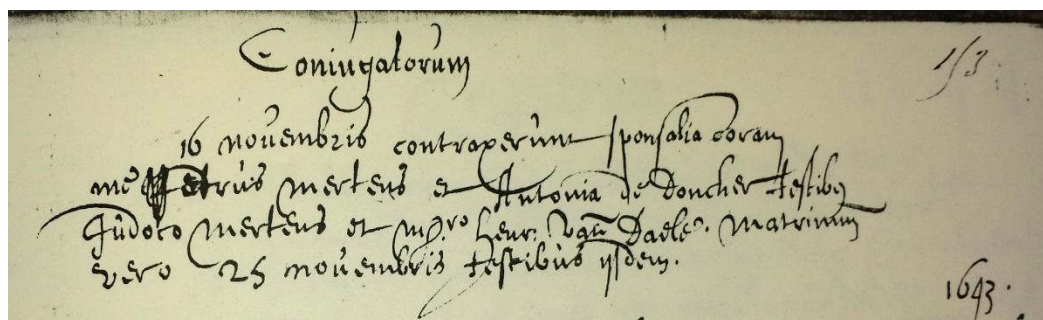 Coniugatorum 153
16 novembris contraxerunt sponsalia coram
me Petrus Mertens et Antonia de Doncher testibus
Judoco Mertens et mg.ro Henr: van Daele. Matrimum
vero 25 novembris testibus ijsdem.
1643.